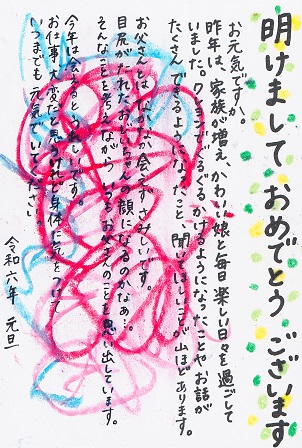 明けまして おめでとう ございます
お元気ですか。
昨年は、家族が増え、かわいい娘と毎日楽しい日々を過ごして
いました。クレヨンでぐるぐる かけるようになったことや お話が
たくさん できるようになったこと、聞いてほしいことが山ほどあります。
お父さんとは なかなか会えず さみしいです。
目尻がたれた おじいちゃんの顔になるのかなぁ。
そんなことを考えながら いつも お父さんのことを 思い出しています。
今年は 会えると うれしいです。
お仕事 大変だと思うけれど 身体に気をつけて
いつまでも 元気でいてください。
令和六年 元旦